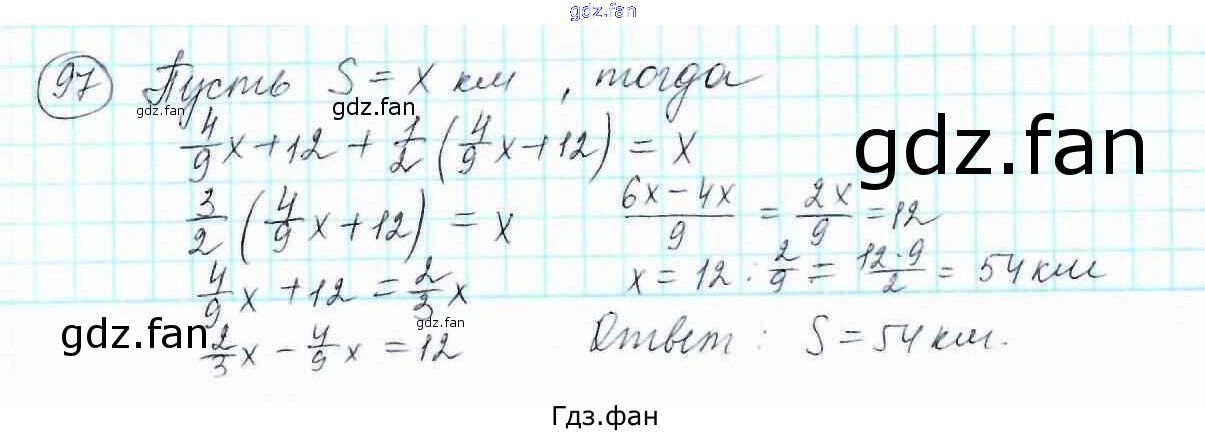 gdz.fan
97 Пусть S = x км , тогда
gdz.fan gdz.fan
4/9 x + 12 + 1/2 (4/9 x + 12) = x
gdz.fan
3/2 (4/9 x + 12) = x
4/9 x + 12 = 2/3 x
gdz.fan gdz.fan
2/3 x - 4/9 x = 12
(6x - 4x)/9 = 2x/9 = 12
x = 12 : 2/9 = (12·9)/2 = 54 км
Ответ: S = 54 км.
Гдз.фан